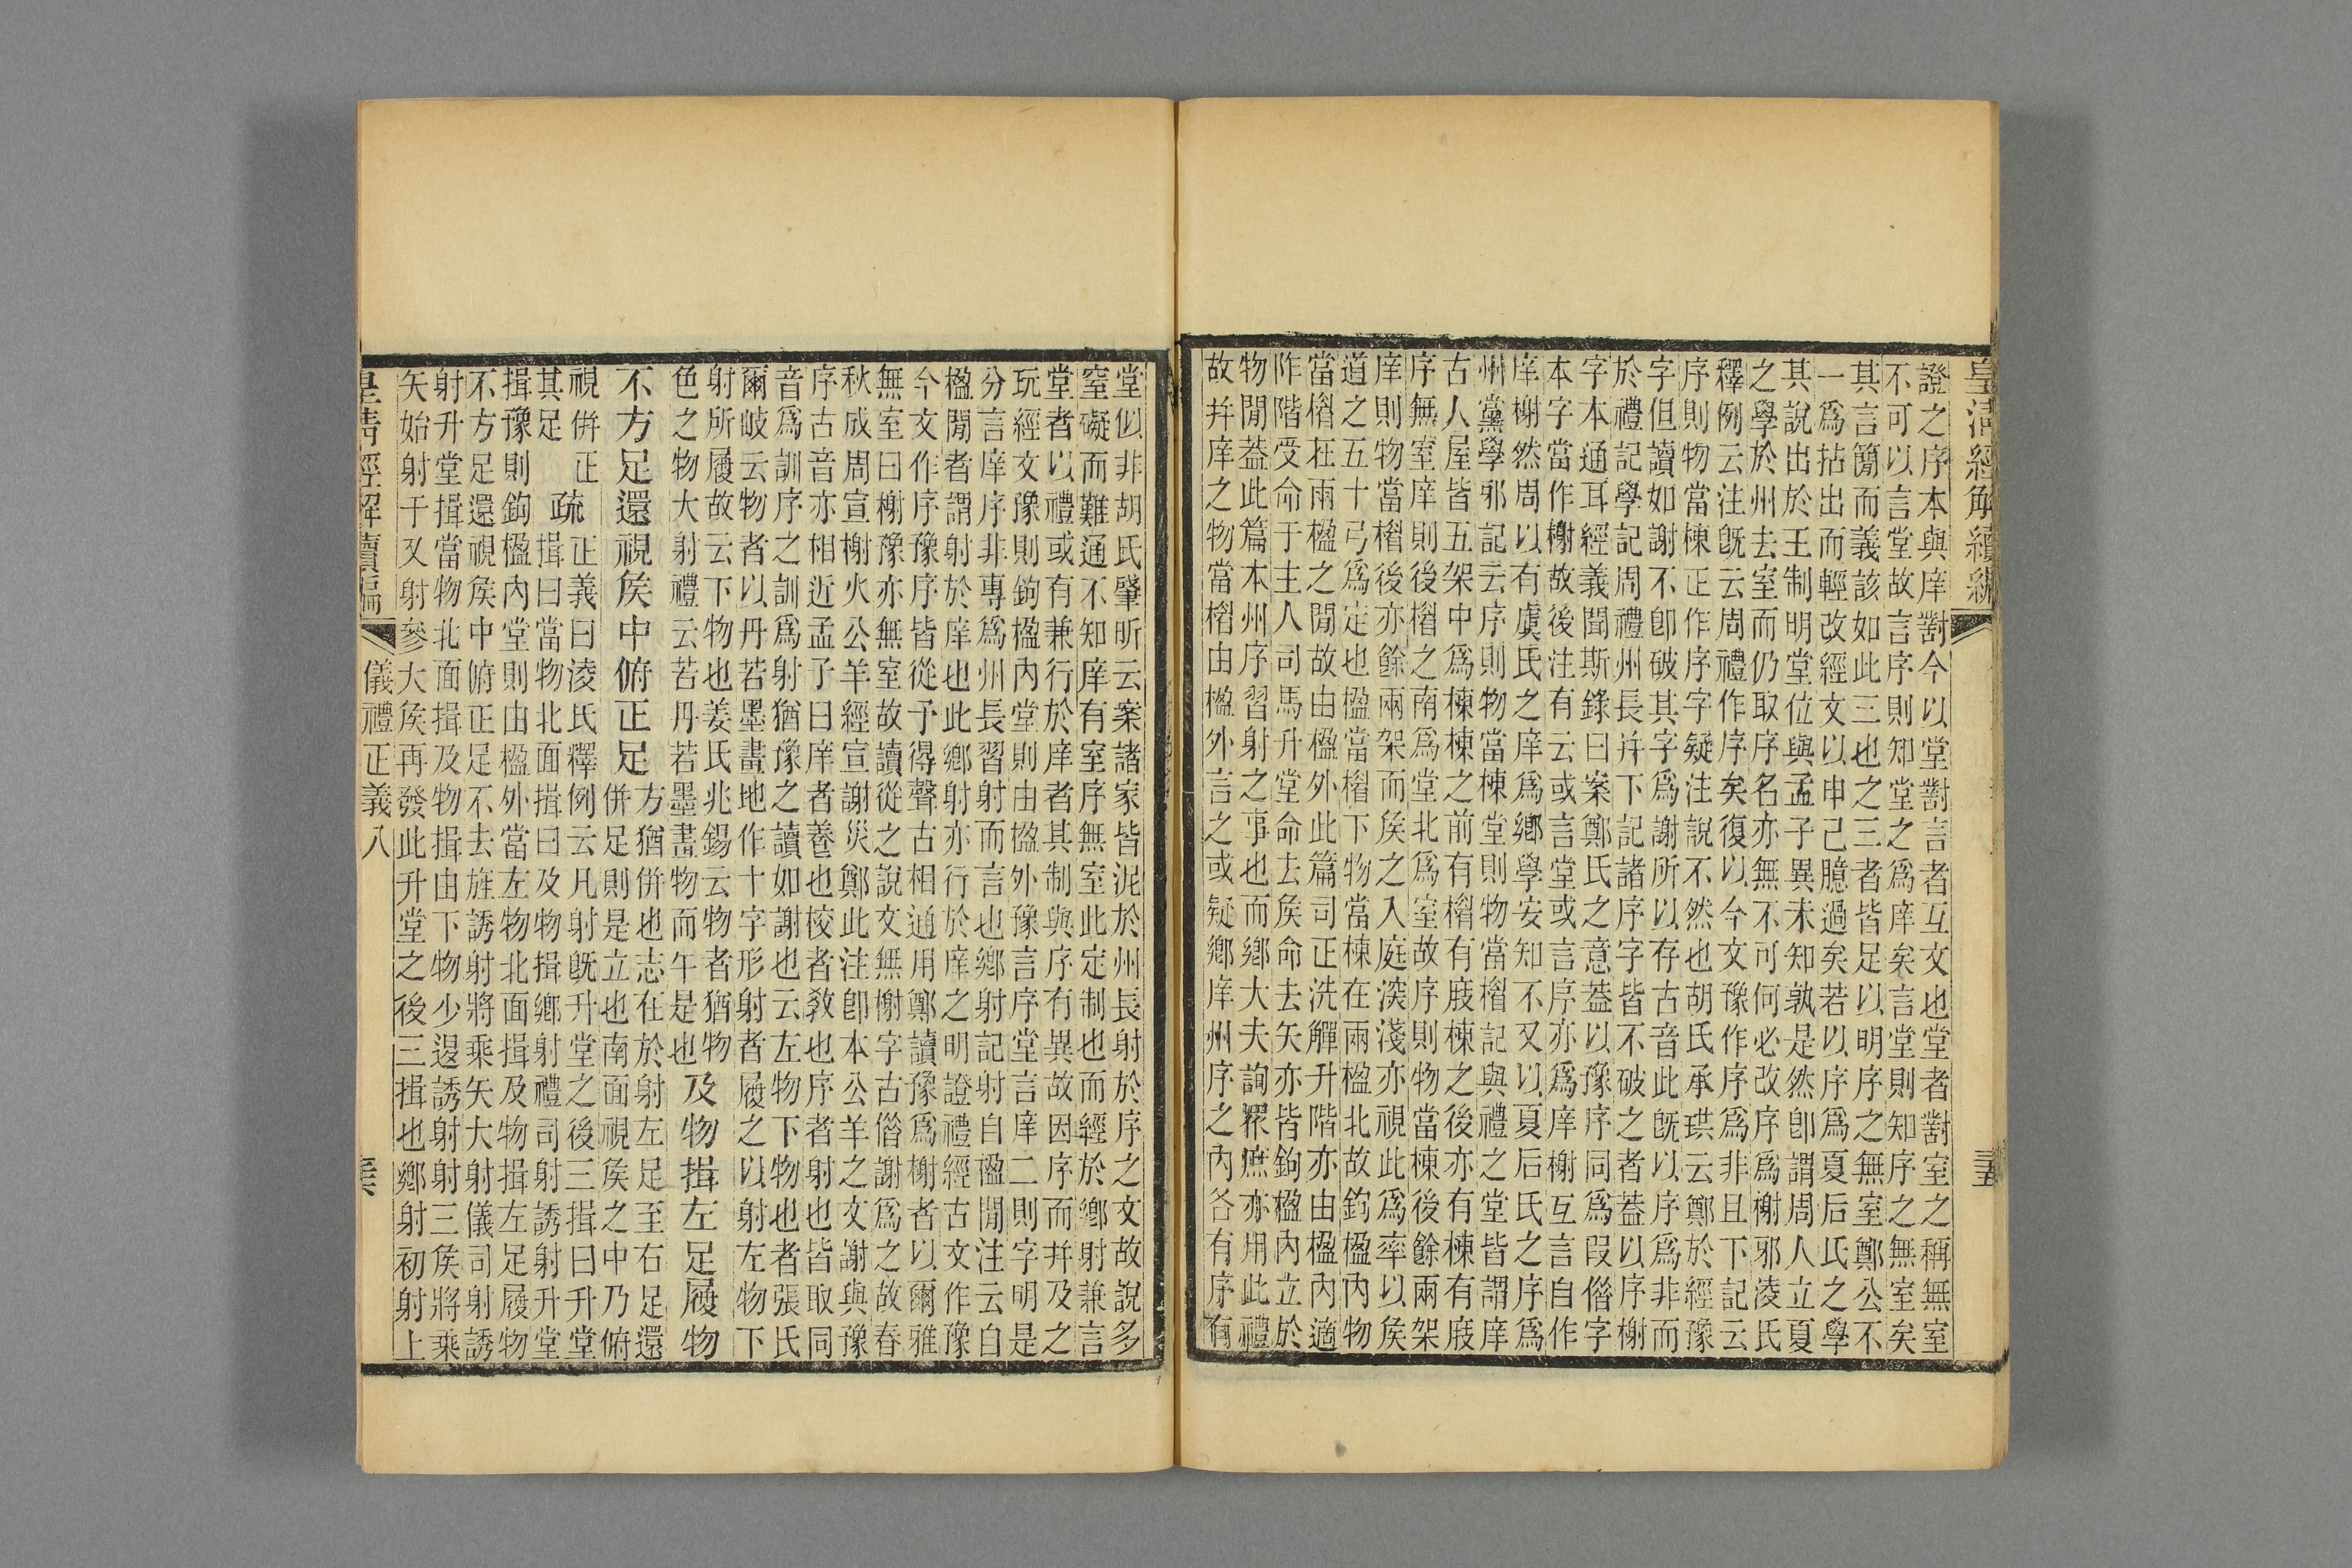 皇淸經解續編
三五
證之序本與庠對今以堂對言者互文也堂者對室之稱無室
不可以言堂故言序則知堂之爲庠矣言堂則知序之無室矣
其言簡而義該如此三也之三者皆足以明序之無室鄭公不
一爲拈出而輕改經文以申己臆過矣若以序爲夏后氏之學
其說出於王制明堂位與孟子異未知孰是然卽謂周人立夏
之學於州去室而仍取序名亦無不可何必改序爲榭邪淩氏
釋例云注旣云周禮作序矣復以今文豫作序爲非且下記云
序則物當棟正作序字疑注說不然也胡氏承珙云鄭於經豫
字但讀如謝不卽破其字爲謝所以存古音此旣以序爲非而
於禮記學記周禮州長幷下記諸序字皆不破之者蓋以序榭
字本通耳經義聞斯錄曰案鄭氏之意蓋以豫序同爲叚偕字
本字當作榭故後注有云或言堂或言序亦爲庠榭互言自作
庠榭然周以有虞氏之庠爲鄉學安知不又以夏后氏之序爲
州黨學邪記云序則物當棟堂則物當楣記與禮之堂皆謂庠
古人屋皆五架中爲棟棟之前有楣有庪棟之後亦有棟有庪
序無室庠則後楣之南爲堂北爲室故序則物當棟後餘兩架
庠則物當楣後亦餘兩架而矦之入庭深淺亦視此爲率以矦
道之五十弓爲定也楹當楣下物當棟在兩楹北故鉤楹內物
當楣在兩楹之閒故由楹外此篇司正洗觶升階亦由楹內適
阼階受命于主人司馬升堂命去矦命去矢亦皆鉤楹內立於
物閒蓋此篇本州序習射之事也而鄉大夫詢眾庶亦用此禮
故幷庠之物當楣由楹外言之或疑鄉庠州序之內各有序有
堂似非胡氏肇昕云案諸家皆泥於州長射於序之文故說多
窒礙而難通不知庠有室序無室此定制也而經於鄉射兼言
堂者以禮或有兼行於庠者其制與序有異故因序而幷及之
玩經文豫則鉤楹內堂則由楹外豫言序堂言庠二則字明是
分言庠序非專爲州長習射而言也鄉射記射自楹閒注云自
楹閒者謂射於庠也此鄉射亦行於庠之明證禮經古文作豫
今文作序豫序皆從予得聲古相通用鄭讀豫爲榭者以爾雅
無室曰榭豫亦無室故讀從之說文無榭字古偕謝爲之故春
秋成周宣榭火公羊經宣謝災鄭此注卽本公羊之文謝與豫
序古音亦相近孟子曰庠者養也校者敎也序者射也皆取同
音爲訓序之訓爲射猶豫之讀如謝也云左物下物也者張氏
爾岐云物者以丹若墨畫地作十字形射者履之以射左物下
射所履故云下物也姜氏兆錫云物者猶物
色之物大射禮云若丹若墨畫物而午是也及物揖左足履物
不方足還視矦中俯正足方猶併也志在於射左足至右足還
併足則是立也南面視矦之中乃俯
視併正
其足　疏正義曰淩氏釋例云凡射旣升堂之後三揖曰升堂
揖曰當物北面揖曰及物揖鄉射禮司射誘射升堂
揖豫則鉤楹內堂則由楹外當左物北面揖及物揖左足履物
不方足還視矦中俯正足不去旌誘射將乘矢大射儀司射誘
射升堂揖當物北面揖及物揖由下物少退誘射射三矦將乘
矢始射干又射參大矦再發此升堂之後三揖也鄉射初射上
皇淸經解續編
儀禮正義八